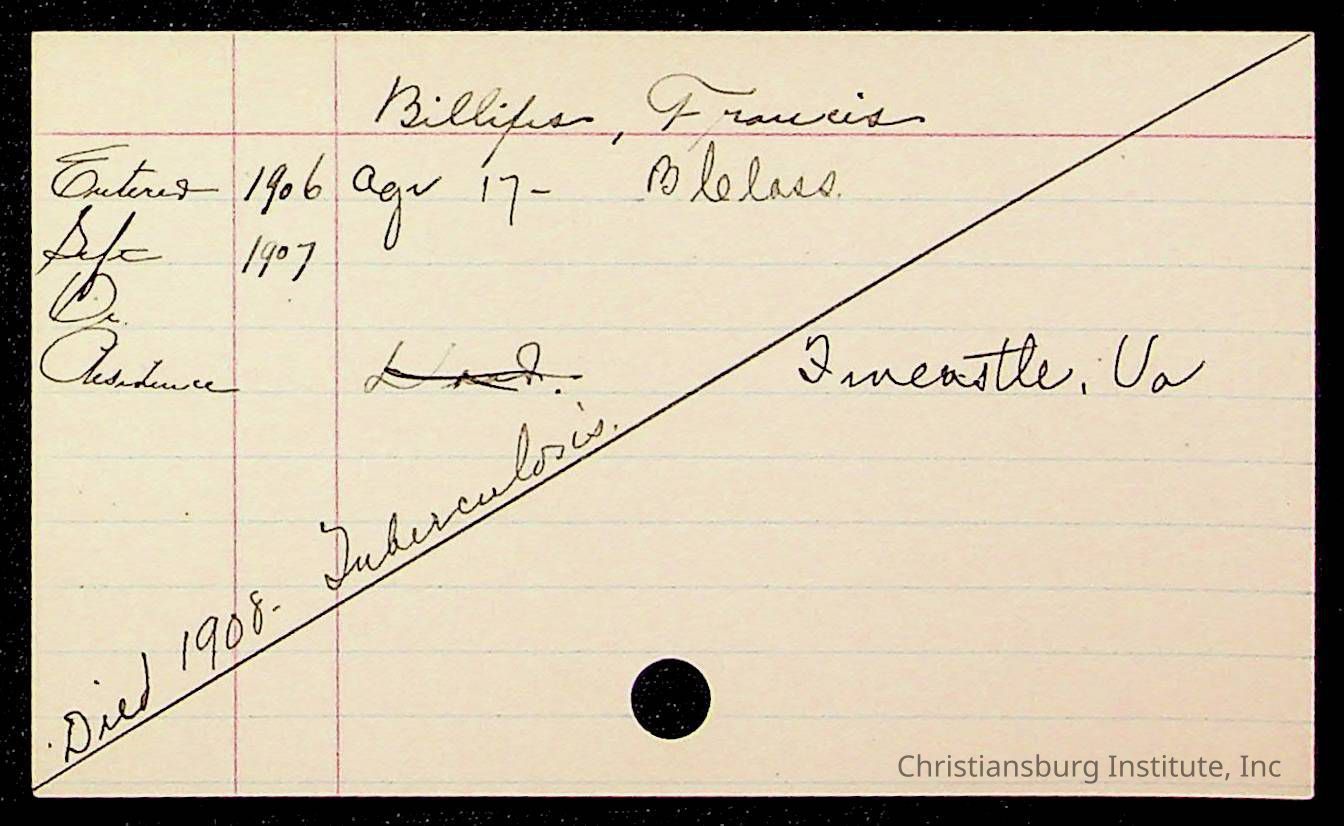 Billips, Francis
Entered 1906 Age 17- B Class.
Left 1907
Or.
Residence Dead. Fincastle, Va
Died 1908- Tuberculosis.
Christiansburg Institute, Inc